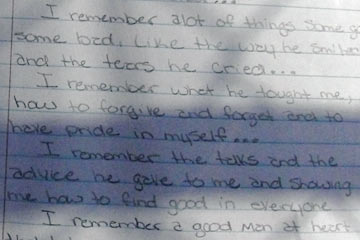 I remember alot of things some go
some bad. Like the way he smiled
and the tears he cried...
I remember what he tought me,
how to forgive and forget and to
have pride in myself...
I remember the talks and the
advice he gave to me and showing
me how to find good in everyone
I remember a good man at heart